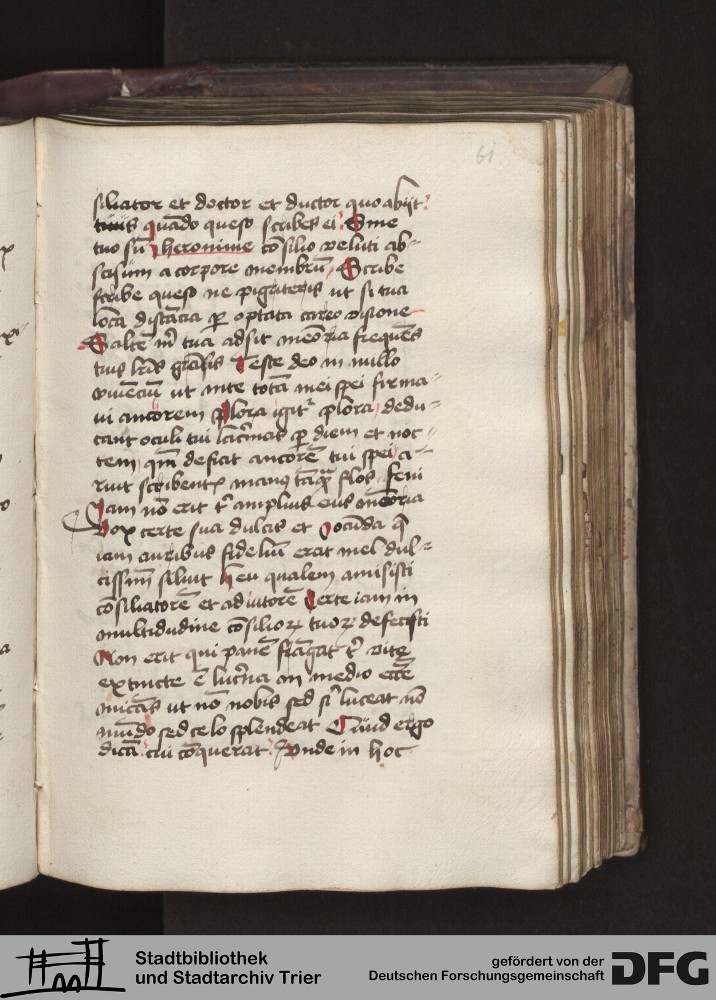 61
siliator et doctor et ductor quo abijt
tuus quādo queso scribes ei Sine
tuo sū Iheronime cōsilio veluti ab=
scisum a corpore membrū Scribe
scribe queso ne pigriteris ut si tua
loca distācia ꝑ optata careo visione
Saltē m̄ tua adsit meōria frequēs
tuis lr̄is Teste deo in nullo
viuēciū ut in te totā mei spei firma=
ui ancorem Plora igit᷑ plora dedu=
cant oculi tui lac̄mas ꝑ diem et noc=
tem qm̄ deficit ancorē tui spei a=
ruit scribentꝭ manꝯ tāqᷓ flos feni
Iam nō erit t᷑ amplius eius meōria
Vox certe sua dulcis et Iocūda q̄
iam auribus fideliū erat mel dul=
cissim̄ siluit heu qualem amisisti
cōsiliatorē et adiutorē Certe iam in
multidudine cōsilioꝝ tuoꝝ defecisti
Non erit qui panē frāgat t᷑ vite
extincte ē luc̄na in medio ecc̄e
micās ut nō nobis sed s᷑ luceat nō
mūdo sed celo splendeat Quid ergo
dicā cui cōquerar Vnde in hoc
Stadtbibliothek
und Stadtarchiv Trier
gefördert von der
Deutschen Forschungsgemeinschaft
DFG